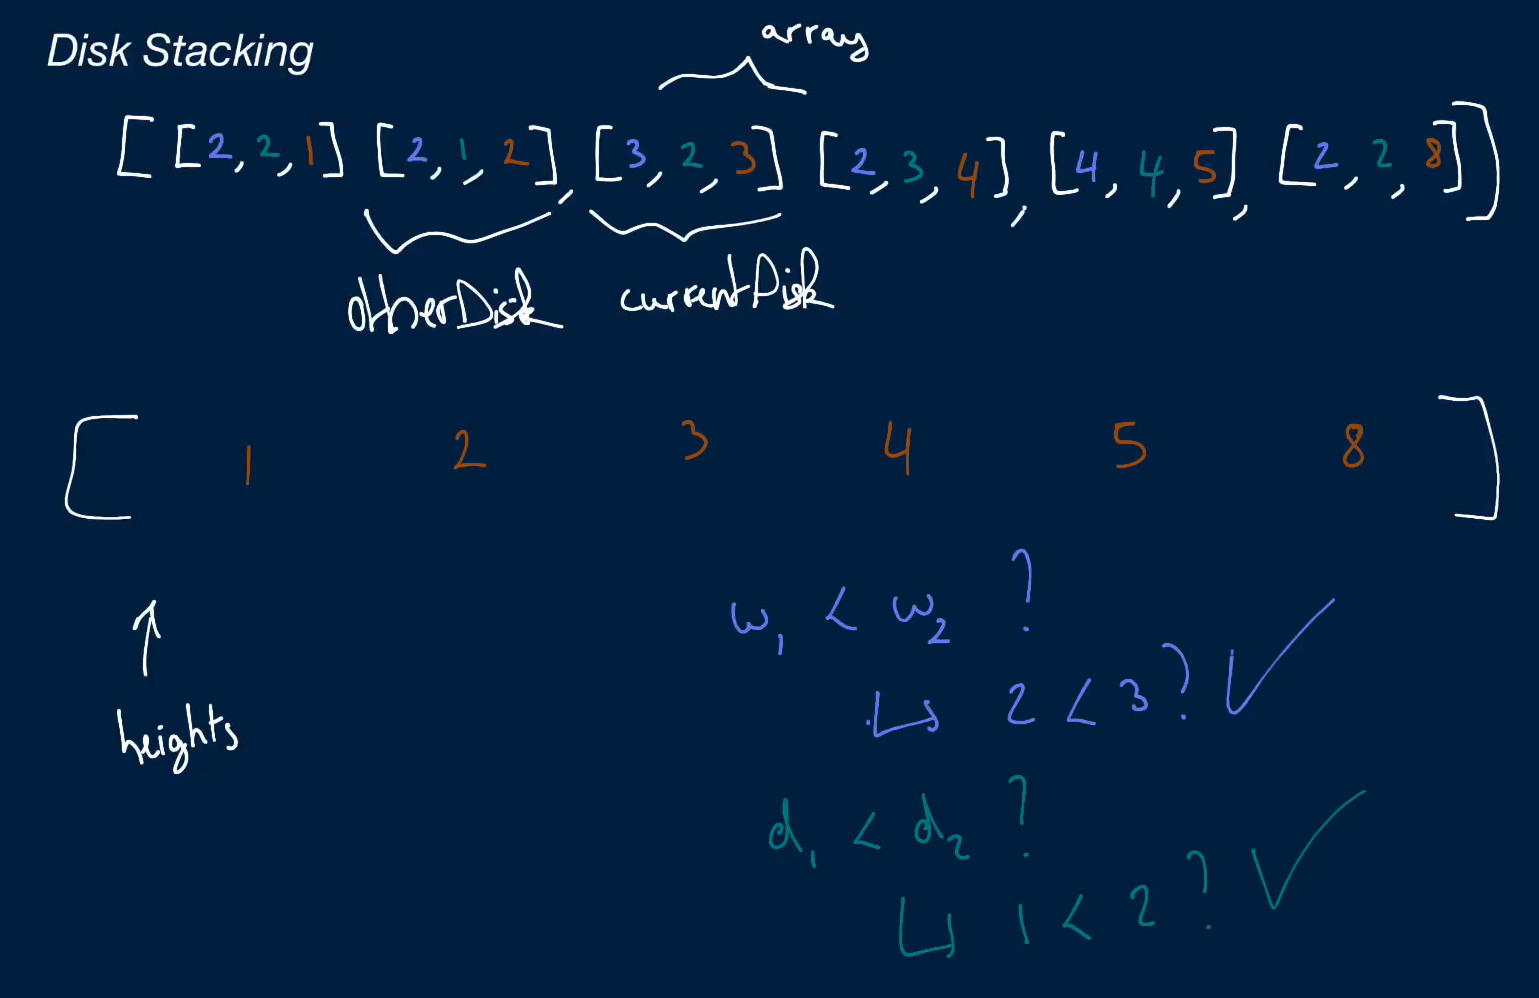 Disk Stacking
array
[ [2, 2, 1] [2, 1, 2], [3, 2, 3] [2, 3, 4], [4, 4, 5], [2, 2, 8] ]
otherDisk currentDisk
[ 1 2 3 4 5 8 ]
w₁ < w₂ ?
↳ 2 < 3 ? ✓
heights
d₁ < d₂ ?
↳ 1 < 2 ? ✓